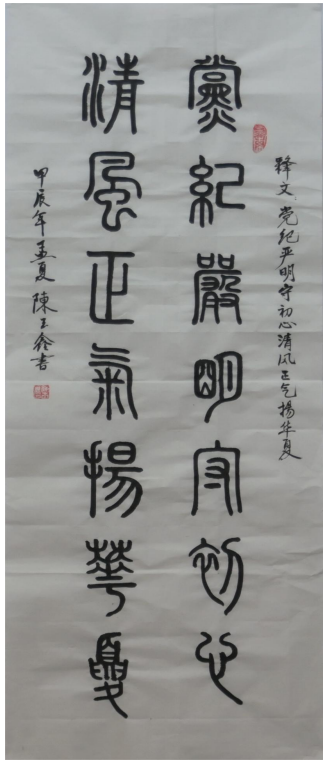 释文：党纪严明守初心清风正气扬华夏
黨紀嚴明守初心
清風正氣揚華夏
甲辰年孟夏陳玉鑫書